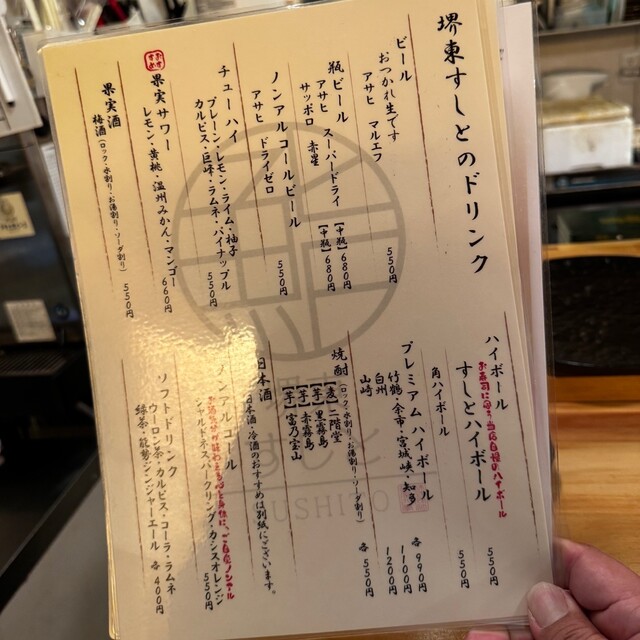 堺東すしとのドリンク
ビール
おつかれ生です
アサヒ マルエフ 550円
瓶ビール
アサヒ スーパードライ 【中瓶】680円
サッポロ 赤星 【中瓶】680円
ノンアルコールビール
アサヒ ドライゼロ 550円
チューハイ
プレーン・レモン・ライム・柚子
カルピス・巨峰・ラムネ・パイナップル 550円
果実サワー
レモン・黄桃・温州みかん・マンゴー 660円
果実酒
梅酒(ロック・水割り・お湯割り・ソーダ割り) 550円
ハイボール
お寿司に合う当店自慢のハイボール
すしとハイボール 550円
角ハイボール 550円
プレミアムハイボール
竹鶴・余市・宮城峡・知多 各990円
白州 1100円
山崎 1200円
焼酎(ロック・水割り・お湯割り・ソーダ割り) 各550円
【麦】二階堂
【芋】黒霧島
【芋】赤霧島
【芋】富乃宝山
日本酒
日本酒 冷酒のおすすめは別紙にございます。
ノンアルコール
シャルドネスパークリング・カシスオレンジ 550円
ソフトドリンク
ウーロン茶・カルピス・コーラ・ラムネ
緑茶・能勢ジンジャーエール 各400円
すしと
SUSHITO